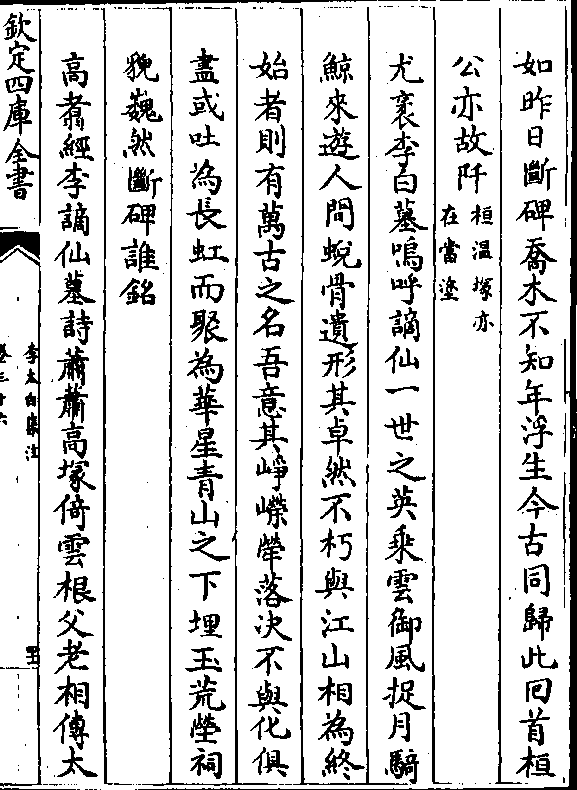 如昨日斷碑喬木不知年浮生今古同歸此回首桓
公亦故阡桓温塚亦在當塗
尤袤李白墓嗚呼謫仙一世之英乘雲御風捉月騎
鯨來遊人間蛻骨遺形其卓然不朽與江山相為終
始者則有萬古之名吾意其崢嶸犖落决不與化俱
盡或吐為長虹而聚為華星青山之下埋玉荒塋祠
貌巍然斷碑誰銘
高翥經李謫仙墓詩蕭蕭高塚倚雲根父老相傳太
欽定四庫全書
李太白集注
卷三十六